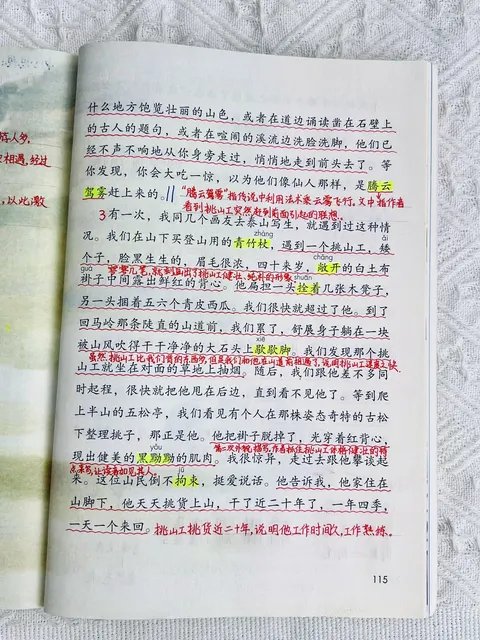 什么地方饱览壮丽的山色，或者在道边诵读凿在石壁上
的古人的题句，或者在喧闹的溪流边洗脸洗脚，他们已
经不声不响地从你身旁走过，悄悄地走到前头去了。等
你发现，你会大吃一惊，以为他们像仙人那样，是腾云
驾雾赶上来的。
"腾云驾雾"指传说中利用法术乘云雾飞行。文中指作者
看到挑山工突然赶到前面引起的联想。
3 有一次，我同几个画友去泰山写生，就遇到过这种情
zhàng
况。我们在山下买登山用的青竹杖，遇到一个挑山工，矮
chǎng
个子，脸黑生生的，眉毛很浓，四十来岁，敞开的白土布
guà
shuān
褂子中间露出鲜红的背心。他扁担一头拴着几张木凳子，
另一头捆着五六个青皮西瓜。我们很快就超过了他。到了
回马岭那条陡直的山道前，我们累了，舒展身子躺在一块
xiē
被山风吹得干干净净的大石头上歇歇脚。我们发现那个挑
山工就坐在对面的草地上抽烟。随后，我们跟他差不多同
时起程，很快就把他甩在后边，直到看不见他了。等到爬
上半山的五松亭，我们看见有个人在那株姿态奇特的古松
下整理挑子，那正是他。他把褂子脱掉了，光穿着红背心，
yǒu
现出健美的黑黝黝的肌肉。我很惊异，走过去跟他攀谈起
jū
来。这位山民倒不拘束，挺爱说话。他告诉我，他家住在
山脚下，他天天挑货上山，干了近二十年了，一年四季，
一天一个来回。
挑山工挑货近二十年，说明他工作时间久，工作熟练。
115
相遇，经过
，以此激